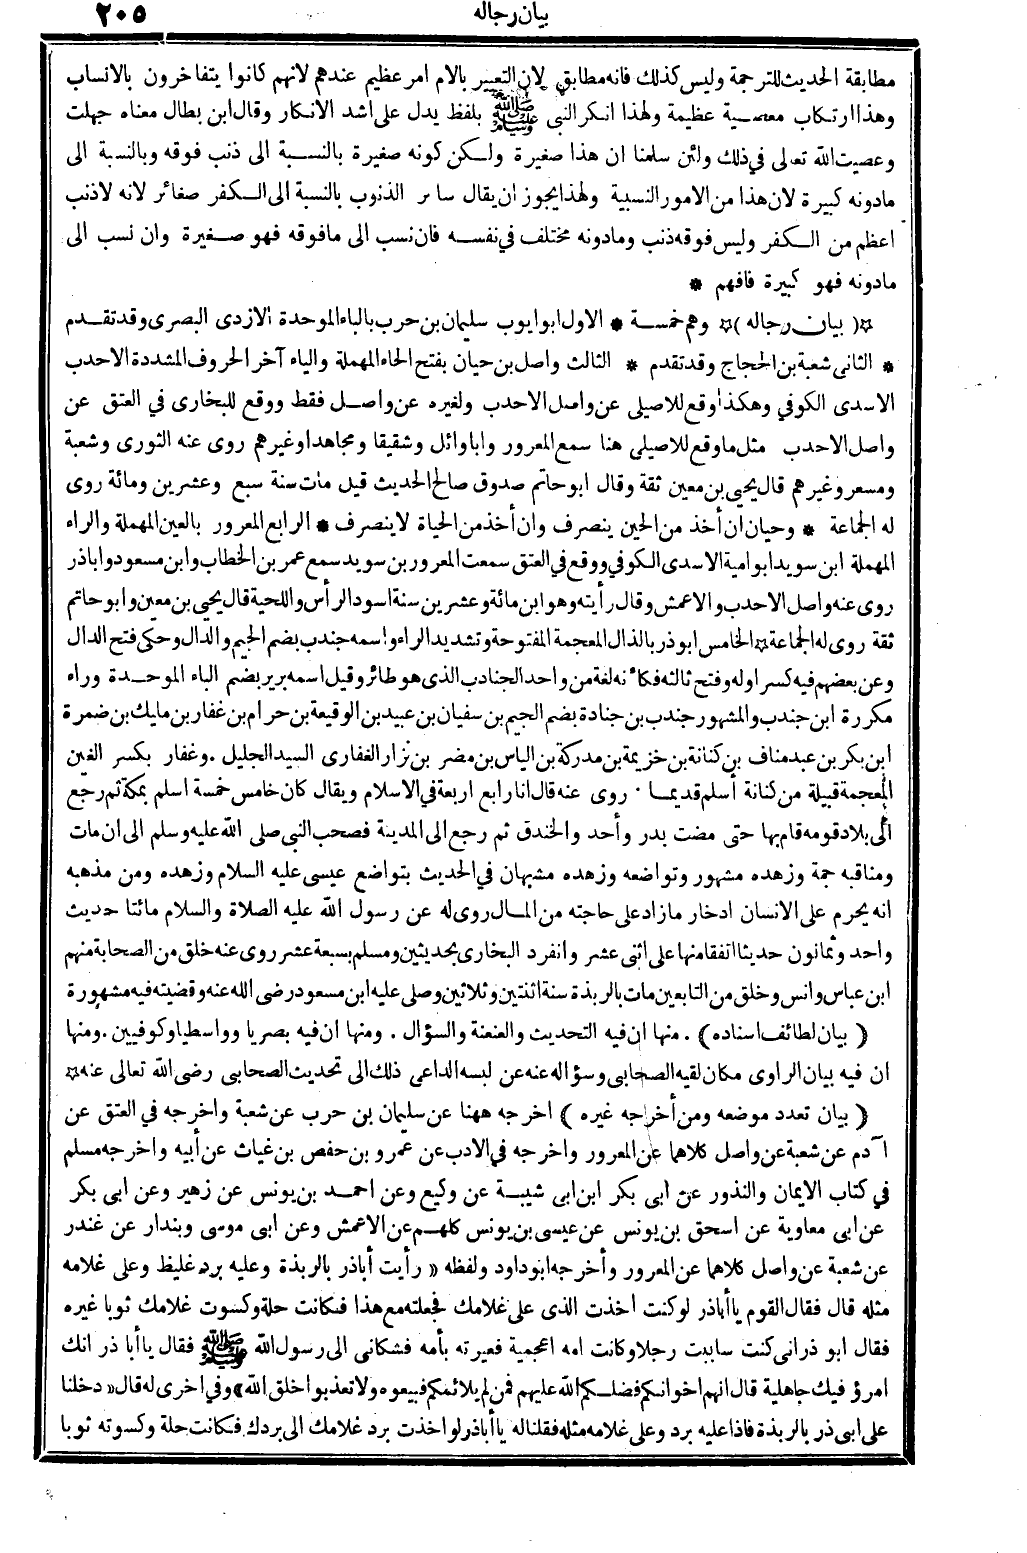 بيان رجاله ٢٠٥
مطابقة الحديث للترجمة وليس كذلك فانه مطابق لان التعيير بالام امر عظيم عندهم لانهم كانوا يتفاخرون بالانساب
وهذا ارتكاب معصية عظيمة ولهذا انكر النبي ﷺ بلفظ يدل على اشد الانكار وقال ابن بطال معناه جهلت
وعصيت الله تعالى في ذلك ولئن سلمنا ان هذا صغيرة ولكن كونه صغيرة بالنسبة الى ذنب فوقه وبالنسبة الى
مادونه كبيرة لان هذا من الامور النسبية ولهذا يجوز ان يقال سائر الذنوب بالنسبة الى الكفر صغائر لانه لاذنب
اعظم من الكفر وليس فوقه ذنب ومادونه مختلف في نفسه فان نسب الى مافوقه فهو صغيرة وان نسب الى
مادونه فهو كبيرة فافهم *
☆( بيان رجاله )☆ وهم خمسة * الاول ابو ايوب سليمان بن حرب بالباء الموحدة الازدى البصرى وقد تقدم
* الثانى شعبة بن الحجاج وقد تقدم * الثالث واصل بن حيان بفتح الحاء المهملة والياء آخر الحروف المشددة الاحدب
الاسدى الكوفي وهكذا وقع للاصيلى عن واصل الاحدب ولغيره عن واصل فقط ووقع للبخارى في العتق عن
واصل الاحدب مثل ماوقع للاصيلى هنا سمع المعرور وابا وائل وشقيقا ومجاهدا وغيرهم روى عنه الثورى وشعبة
ومسعر وغيرهم قال يحيى بن معين ثقة وقال ابو حاتم صدوق صالح الحديث قيل مات سنة سبع وعشرين ومائة روى
له الجماعة * وحيان ان أخذ من الحين ينصرف وان أخذ من الحياة لا ينصرف * الرابع المعرور بالعين المهملة والراء
المهملة ابن سويد ابو امية الاسدى الكوفي ووقع في العتق سمعت المعرور بن سويد سمع عمر بن الخطاب وابن مسعود وا باذر
روى عنه واصل الاحدب والاعمش وقال رأيته وهو ابن مائة وعشرين سنة اسود الرأس واللحية قال يحيى بن معين وابو حاتم
ثقة روى له الجماعة ☆ الخامس ابو ذر بالذال المعجمة المفتوحة وتشديد الراء واسمه جندب بضم الجيم والدال وحكى فتح الدال
وعن بعضهم فيه كسر اوله وفتح ثالثه فكأنه لغة من واحد الجنادب الذى هو طائر وقيل اسمه برير بضم الباء الموحدة وراء
مكررة ابن جندب والمشهور جندب بن جنادة بضم الجيم بن سفيان بن عبيد بن الوقيعة بن حرام بن غفار بن مايك بن ضمرة
ابن بكر بن عبد مناف بن كنانة بن خزيمة بن مدركة بن الياس بن مضر بن نزار الغفارى السيد الجليل . وغفار بكسر الغين
المعجمة قبيلة من كنانة أسلم قديما . روى عنه قال انا رابع اربعة في الاسلام ويقال كان خامس خمسة اسلم بمكة ثم رجع
الى بلاد قومه قام بها حتى مضت بدر وأحد والخندق ثم رجع الى المدينة فصحب النبي صلى الله عليه وسلم الى ان مات
ومناقبه جمة وزهده مشهور وتواضعه وزهده مشبهان في الحديث بتواضع عيسى عليه السلام وزهده ومن مذهبه
انه يحرم على الانسان ادخار مازاد على حاجته من المال روى له عن رسول الله عليه الصلاة والسلام مائتا حديث
واحد وثمانون حديثا اتفقا منها على اثنى عشر وانفرد البخارى بحديثين ومسلم بسبعة عشر روى عنه خلق من الصحابة منهم
ابن عباس وانس وخلق من التابعين مات بالربذة سنة اثنتين وثلاثين وصلى عليه ابن مسعود رضى الله عنه وقضيته فيه مشهورة
( بيان لطائف اسناده ) . منها ان فيه التحديث والعنعنة والسؤال . ومنها ان فيه بصريا وواسطيا وكوفيين . ومنها
ان فيه بيان الراوى مكان لقيه الصحابى وسؤاله عنه عن لبسه الداعى ذلك الى تحديث الصحابى رضى الله تعالى عنه ☆
( بيان تعدد موضعه ومن أخراجه غيره ) اخرجه ههنا عن سليمان بن حرب عن شعبة واخرجه في العتق عن
آدم عن شعبة عن واصل كلاهما عن المعرور واخرجه في الادب عن عمرو بن حفص بن غياث عن أبيه واخرجه مسلم
في كتاب الايمان والنذور عن أبى بكر ابن ابى شيبة عن وكيع وعن احمد بن يونس عن زهير وعن ابى بكر
عن ابى معاوية عن اسحق بن يونس عن عيسى بن يونس كلهم عن الاعمش وعن ابى موسى وبندار عن غندر
عن شعبة عن واصل كلاهما عن المعرور وأخرجه ابو داود ولفظه « رأيت أباذر بالربذة وعليه برد غليظ وعلى غلامه
مثله قال فقال القوم يا أباذر لو كنت اخذت الذى على غلامك فجعلته مع هذا فكانت حلة وكسوت غلامك ثوبا غيره
فقال ابو ذر انى كنت ساببت رجلا وكانت امه اعجمية فعيرته بأمه فشكانى الى رسول الله ﷺ فقال يا أبا ذر انك
امرؤ فيك جاهلية قال انهم اخوانكم فضلكم الله عليهم فمن لم يلائمكم فبيعوه ولا تعذبوا خلق الله» وفي اخرى له قال « دخلنا
على ابى ذر بالربذة فاذا عليه برد وعلى غلامه مثله فقلنا له يا أباذر لو اخذت برد غلامك الى بردك فكانت حلة وكسوته ثوبا